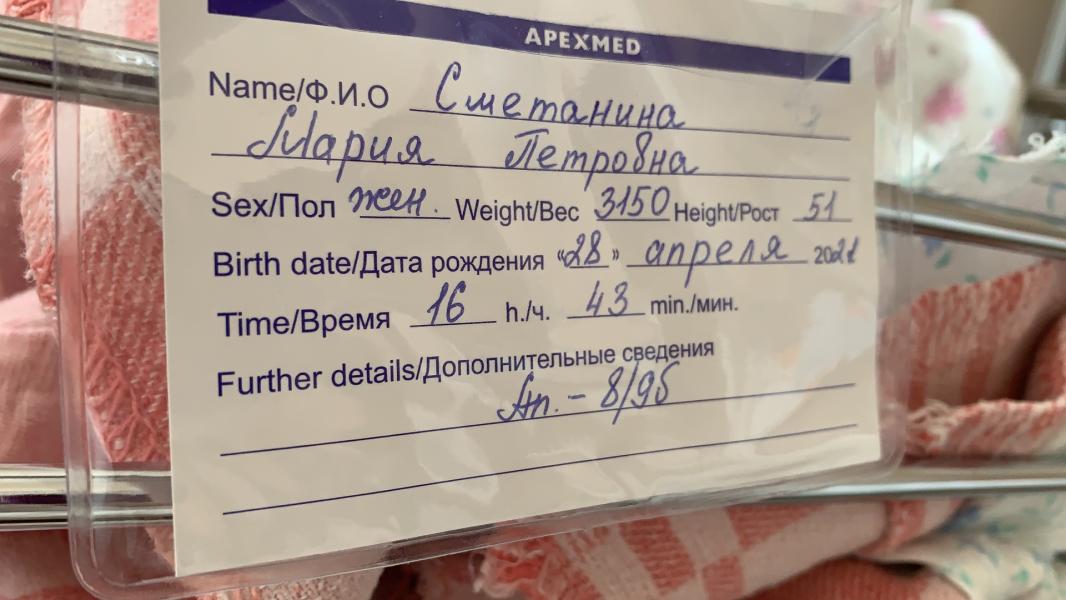 APEXMED
Name/Ф.И.О Сметанина
Мария Петровна
Sex/Пол жен. Weight/Вес 3150 Height/Рост 51
Birth date/Дата рождения «28» апреля 2021
Time/Время 16 h./ч. 43 min./мин.
Further details/Дополнительные сведения
Ап. - 8/9б